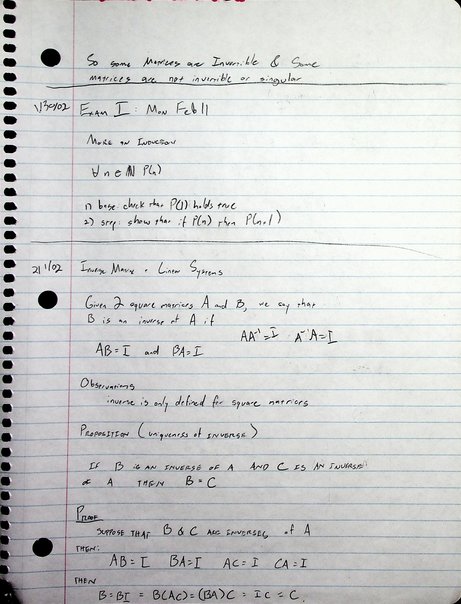 So some Matrices are Inversible & Some
matrices are not inversible or singular
1/30/02 Exam I : Mon Feb 11
More on Induction
∀ n ∈ ℕ P(n)
1) base: check that P(1) holds true
2) step: show that if P(n) then P(n+1)
2/1/02 Inverse Matrix & Linear Systems
Given 2 square matrices A and B, we say that
B is an inverse of A if
AA⁻¹=I A⁻¹A=I
AB=I and BA=I
Observations
inverse is only defined for square matrices
Proposition (uniqueness of inverse)
If B is an inverse of A and C is an inverse
of A then B=C
Proof
Suppose that B & C are inverses of A
Then:
AB=I BA=I AC=I CA=I
Then
B=BI = B(AC)=(BA)C = IC = C